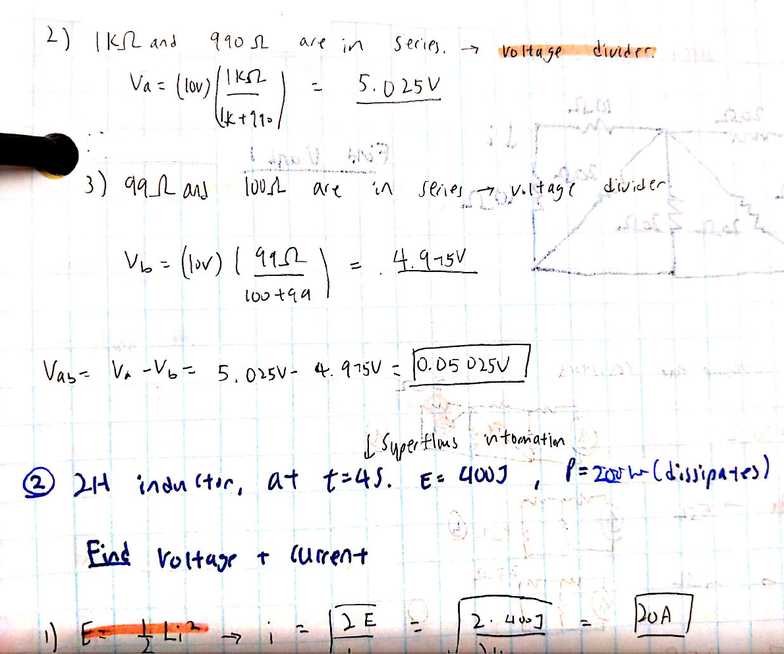 2) 1KΩ and 990Ω are in series. → voltage divider.
Va = (10V) (1KΩ / 1K + 990) = 5.025V
3) 99Ω and 100Ω are in series → voltage divider
Vb = (10V) (99Ω / 100 + 99) = 4.975V
Vab = Va - Vb = 5.025V - 4.975V = 0.05025V
↓ Superflous information
② 2H inductor, at t=4s. E= 400J, P=200W (dissipates)
Find voltage + current
1) E= 1/2 Li² → i = √2E = √2·400J = 20A